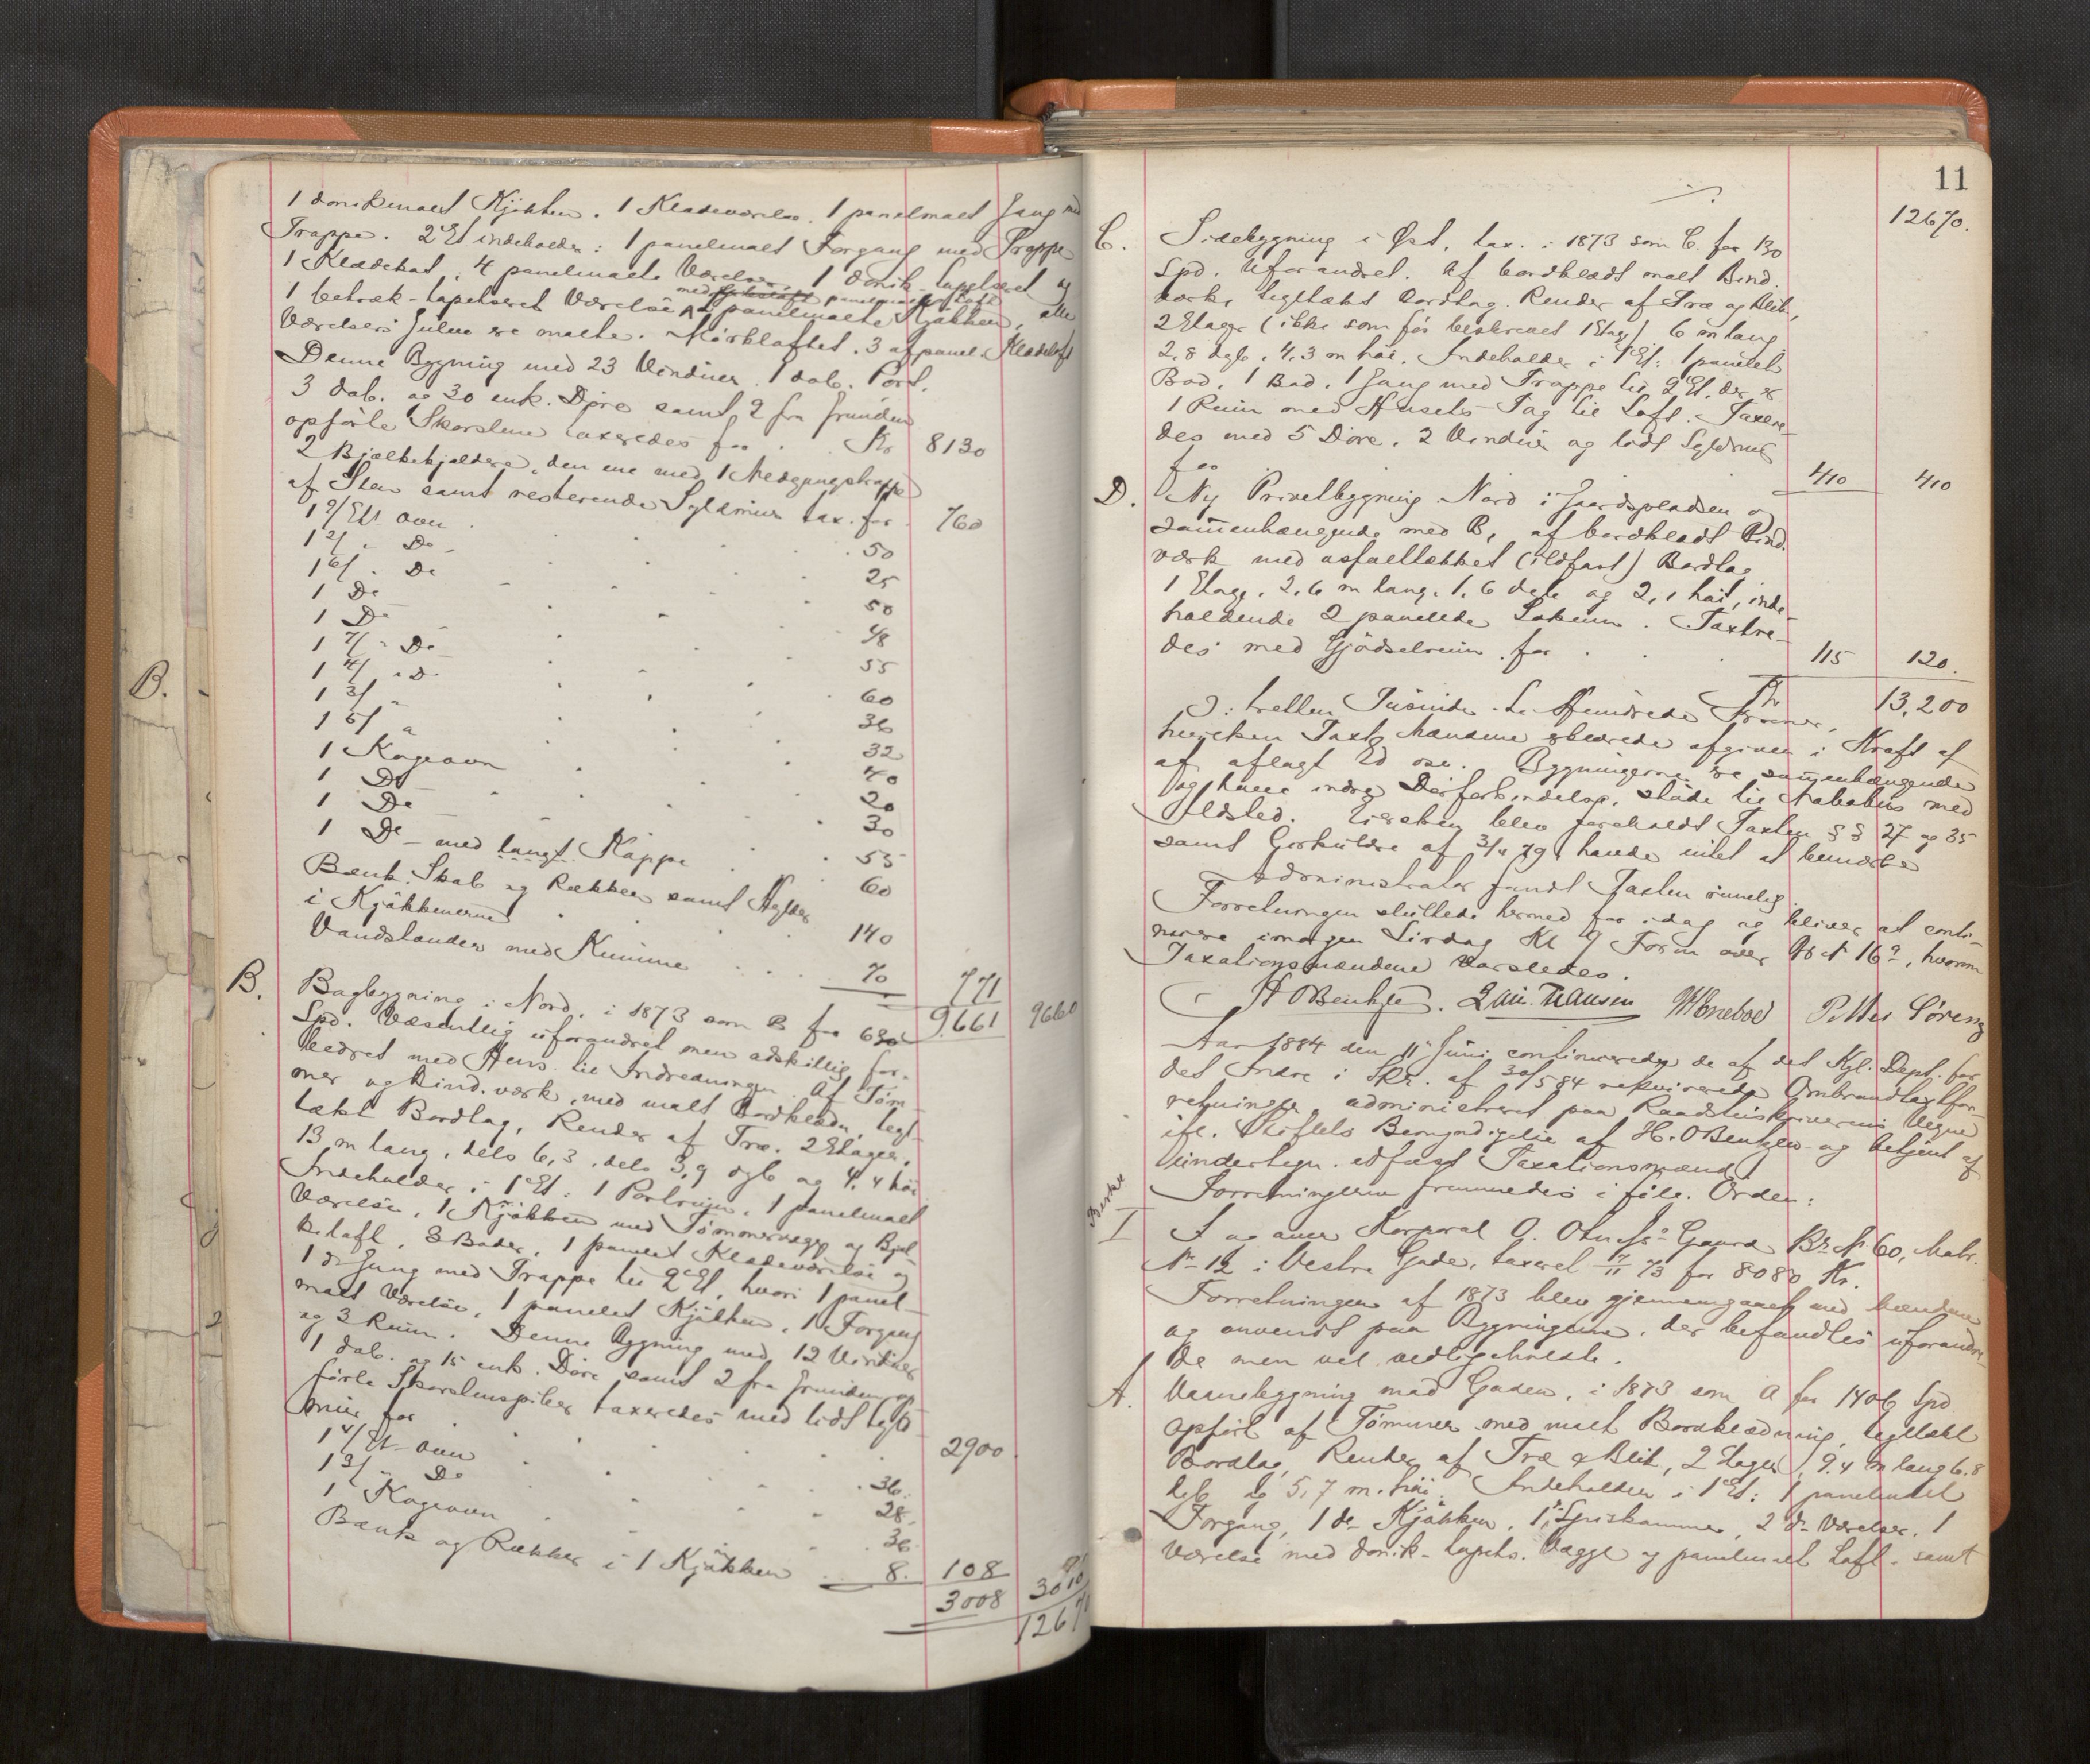 1 donikmalt Kjøkken. 1 Klædeværelse. 1 panelmalt Gang med
Trappe. 2 Et indeholder: 1 panelmalt Forgang med Trappe
1 Klædekot, 4 panelmalte Værelser, 1 donik-tapetseret og
med panelmalt Loft
1 betræk-tapetseret Værelse 2 panelmalte Kjøkken, alle
Værelsers Gulve ere malte. Mørkloftet. 3 afpanel. Klædeloft
Denne Bygning med 23 Vinduer. 1 dob. Port.
3 dob. og 30 enk. Døre samt 2 fra Grunden
opførte Skorstene taxeredes for . Kr 8130
2 Bjælkekjældere, den ene med 1 Nedgangstrappe
af Sten samt resterende Syldmur tax. for 760
1 2/Et. Ovn . 50
1 2/" Do - 25
1 6/" Do 50
1 Do 48
1 Do 55
1 7/" Do 60
1 4/" D. 36
1 3/ " 32
1 5/ " 40
1 Kogeovn 20
1 Do 30
1 Do 55
1 Do - med langt Kappe 60
Bænk. Skab og Rækker samt Hylder
i Kjøkkenerne 140
Vandstander med Kumme 70 771
9.661 9660
B. Bagbygning i Nord, i 1873 som B for 630
Spd. Væsentlig uforandret men adskillig for-
bedret med Hens. til Indredningen. Af Tøm-
mer og Bind.værk, med malt Bordklædn, tegl-
tækt Bordtag, Render af Træ. 2 Etager,
13 m lang, dels 6,3, dels 3,9 dyb og 4,4 høi
Indeholder i 1 Et: 1 Portrum, 1 panelmalt
Værelse, 1 Kjøkken med Tømmervægge og Bjel-
keloft, 3 Boder, 1 panelet Klædeværelse og
1 do Gang med Trappe til 2 Et, hvori 1 panel-
malt Værelse, 1 panelet Kjøkken, 1 Forgang
og 3 Rum. Denne Bygning med 12 Vinduer
1 dob. og 15 enk. Døre samt 2 fra Grunden op-
førte Skorstenspiber taxeredes med lidt Syld-
mur for 2900
1 4/Et- Ovn 36.
1 3/" Do 28.
1 Kogeovn 36
Bænk og Rækker i 1 Kjøkken 8. 108
3008 3010
1267
B.
11
12670.
C. Sidebygning i Øst, tax. i 1873 som C. for 130
Spd. Uforandret. Af bordklædt malt Bind.
værk, tegltækt Bordtag. Render af Træ og Blik,
2 Etager (ikke som før beskrevet 1 Etag) 6 m lang
2,8 dyb, 4,3 m høi. Indeholder i 1 Et: 1 panelet
Bod, 1 Bod, 1 Gang med Trappe til 2 Et. der er
1 Rum med Husets Tag til Loft. Taxere-
des med 5 Døre, 2 Vinduer og lidt Syldmur
for 410 410
D. Ny Privetbygning Nord i Gaardspladsen og
sammenhængende med B, af bordklædt Bind.
værk med asfalttækket (ildfast) Bordtag
1 Etage, 2,6 m lang, 1,6 dyb og 2,1 høi, inde-
holdende 2 panelede Lokum. Taxere-
des med Gjødselrum for 115 120.
Kr 13,200
ɔ: tretten Tusinde to Hundrede Kroner,
hvilken Taxt Mændene erklærede afgiven i Kraft af
af aflagt Ed osv. Bygningerne ere sammenhængende
og have indre Dørforbindelse, støde til Nabohus med
Ildsted. Eieren blev foreholdt Taxtens §§ 27 og 35
samt Cirkulære af 3/4 79, havde intet at bemærke
Administrator fandt Taxten rimelig.
Forretningen sluttede hermed for idag og bliver at conti-
nuere imorgen Onsdag Kl 9 Form over Br Nr 16a, hvorom
Taxationsmændene varsledes.
H O Bentzen. Laur. Hansen Petter Sørens
Aar 1884 den 11 Juni continueredes de af det Kgl. Dept. for
det Indre i Skr. af 30/5 84 rekvirerede Ombrandtaxtfor-
retninger, administreret paa Raadstuskriverens Vegne
ifl. Stiftets Bemyndigelse af H. O Bentzen og betjent af
undertegn. edfæst Taxationsmænd
Forretningerne fremmedes i følg. Orden:
I I og over Korporal O. Gaard Br No 60, Matr.
No 12 i Vestre Gade, taxeret 7/11 73 for 8080 Kr.
Forretningen af 1873 blev gjennemgaaet med Mændene
og anvendt paa Bygningerne, der befandtes uforandre-
de men vel vedligeholdte.
A. Vaanebygning mod Gaden, i 1873 som A for 1406 Spd
opført af Tømmer med malt Bordklædning, tegltækt
Bordtag, Render af Træ & Blik, 2 Etager, 9.4 m lang 6.8
dyb & 5,7 m. høi. Indeholder i 1 Et: 1 panelmalt
Forgang, 1 do Kjøkken, 1 Spiskammer, 2 do Værelser, 1
Værelse med donik-tapets. Vægge og panelmalt Loft. samt